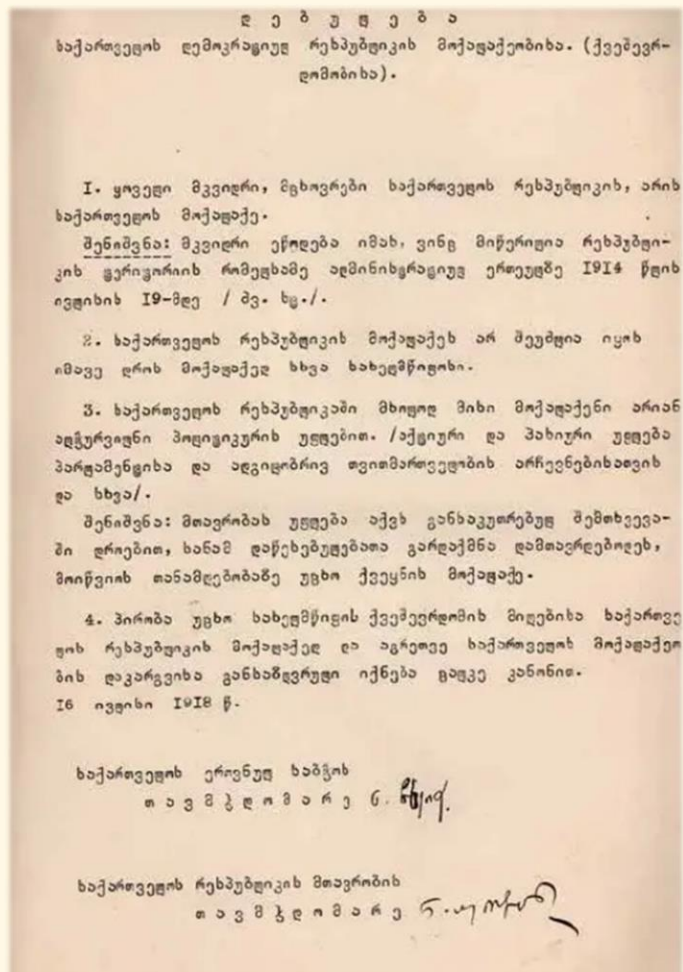 დ ე ბ უ ლ ე ბ ა
საქართველოს დემოკრატიულ რესპუბლიკის მოქალაქეობისა. (ქვეშევრ-
დომობისა).
I. ყოველი მკვიდრი, მცხოვრები საქართველოს რესპუბლიკის, არის
საქართველოს მოქალაქე.
შენიშვნა: მკვიდრი ეწოდება იმას, ვინც მიწერილია რესპუბლი-
კის ტერიტორიის რომელსამე ადმინისტრაციულ ერთეულზე 1914 წლის
ივლისის 19-მდე / ძვ. სტ./.
2. საქართველოს რესპუბლიკის მოქალაქეს არ შეუძლია იყოს
იმავე დროს მოქალაქედ სხვა სახელმწიფოსი.
3. საქართველოს რესპუბლიკაში მხოლოდ მისი მოქალაქენი არიან
აღჭურვილნი პოლიტიკურის უფლებით. /აქტიური და პასიური უფლება
პარლამენტისა და ადგილობრივ თვითმართველობის არჩევნებისათვის
და სხვა/.
შენიშვნა: მთავრობას უფლება აქვს განსაკუთრებულ შემთხვევა-
ში დროებით, სანამ დაწესებულებათა გარდაქმნა დამთავრდებოდეს,
მოიწვიოს თანამდებობაზე უცხო ქვეყნის მოქალაქე.
4. პირობა უცხო სახელმწიფის ქვეშევრდომის მიღებისა საქართვე
ლოს რესპუბლიკის მოქალაქედ და აგრეთვე საქართველოს მოქალაქეო
ბის დაკარგვისა განსაზღვრული იქნება ცალკე კანონით.
16 ივლისი 1918 წ.
საქართველოს ეროვნულ საბჭოს
თ ა ვ მ ჯ დ ო მ ა რ ე ნ.
საქართველოს რესპუბლიკის მთავრობის
თ ა ვ მ ჯ დ ო მ ა რ ე ნ.